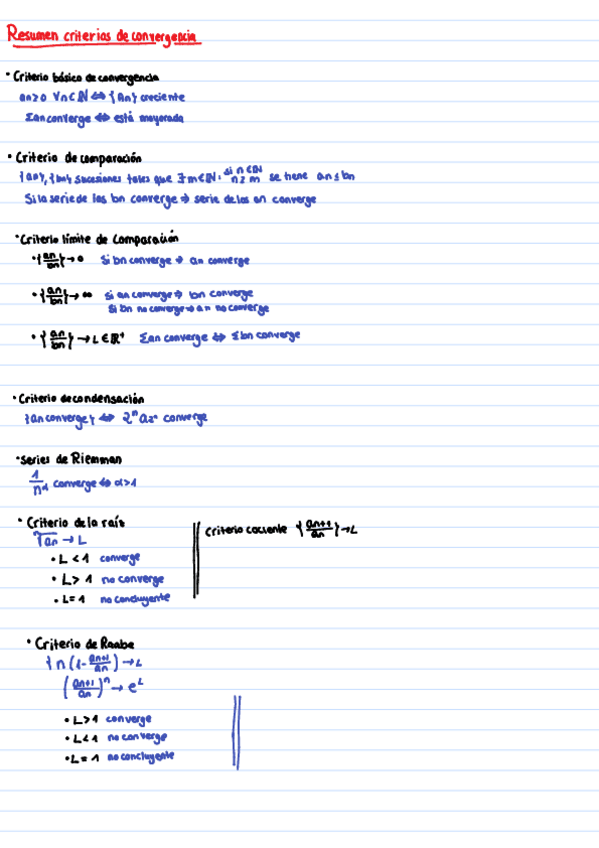 Resumen criterios de convergencia
• Criterio básico de convergencia
an≥0 ∀n∈ℕ ⇔ {An} creciente
Σan converge ⇔ está mayorada
• Criterio de comparación
{an}, {bn} sucesiones tales que ∃m∈ℕ: si n∈ℕ n≥m se tiene an≤bn
Si la serie de las bn converge ⇒ serie de las an converge
• Criterio límite de comparación
• {an/bn} → 0 Si bn converge ⇒ an converge
• {an/bn} → ∞ Si an converge ⇒ bn converge
Si bn no converge ⇒ an no converge
• {an/bn} → L∈ℝ⁺ Σan converge ⇔ Σbn converge
• Criterio de condensación
{an converge} ⇔ 2ⁿ a2ⁿ converge
• Series de Riemman
1/n^α converge ⇔ α>1
• Criterio de la raíz
ⁿ√an → L
• L < 1 converge
• L > 1 no converge
• L = 1 no concluyente
Criterio cociente {an+1/an} → L
• Criterio de Raabe
{n(1- an+1/an) → L
(an+1/an)ⁿ → e^L
• L>1 converge
• L<1 no converge
• L = 1 no concluyente